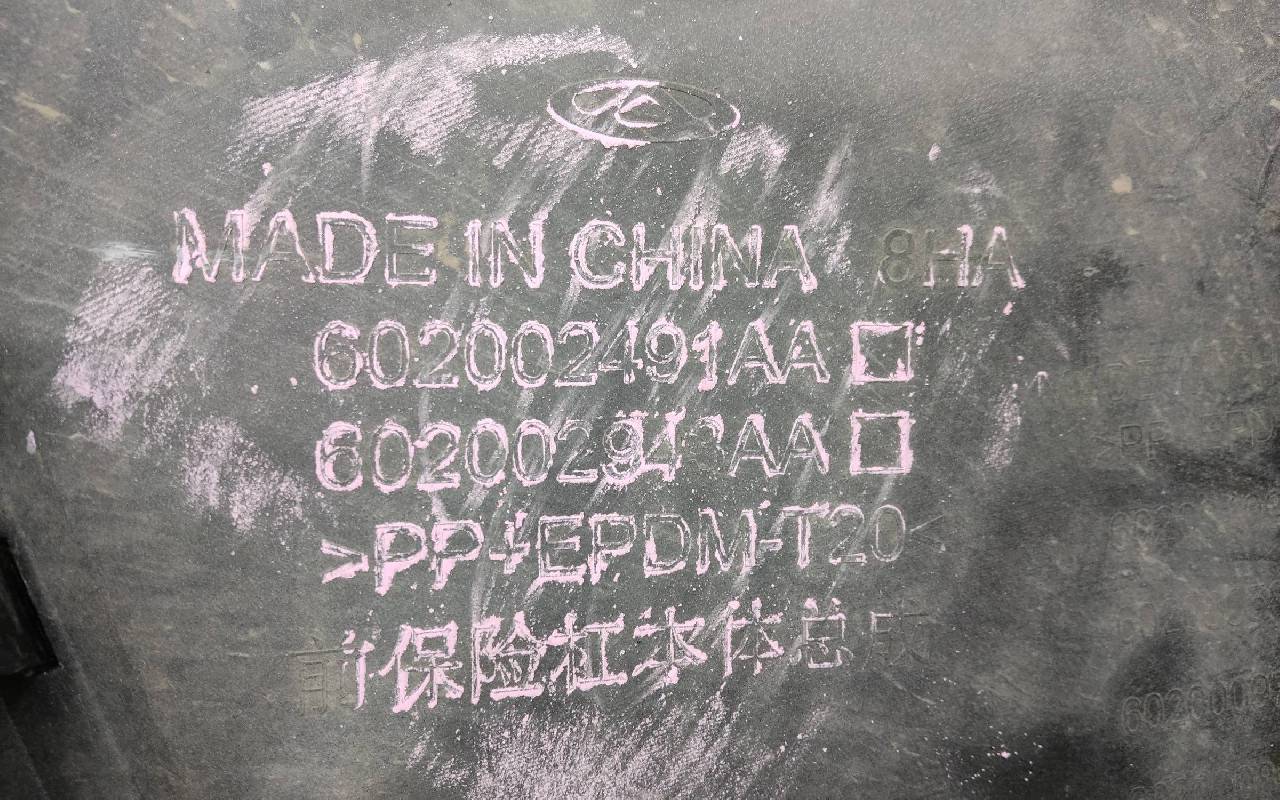 MADE IN CHINA 8HA
602002491AA
602002943AA
>PP+EPDM-T20<
前保险杠本体总成